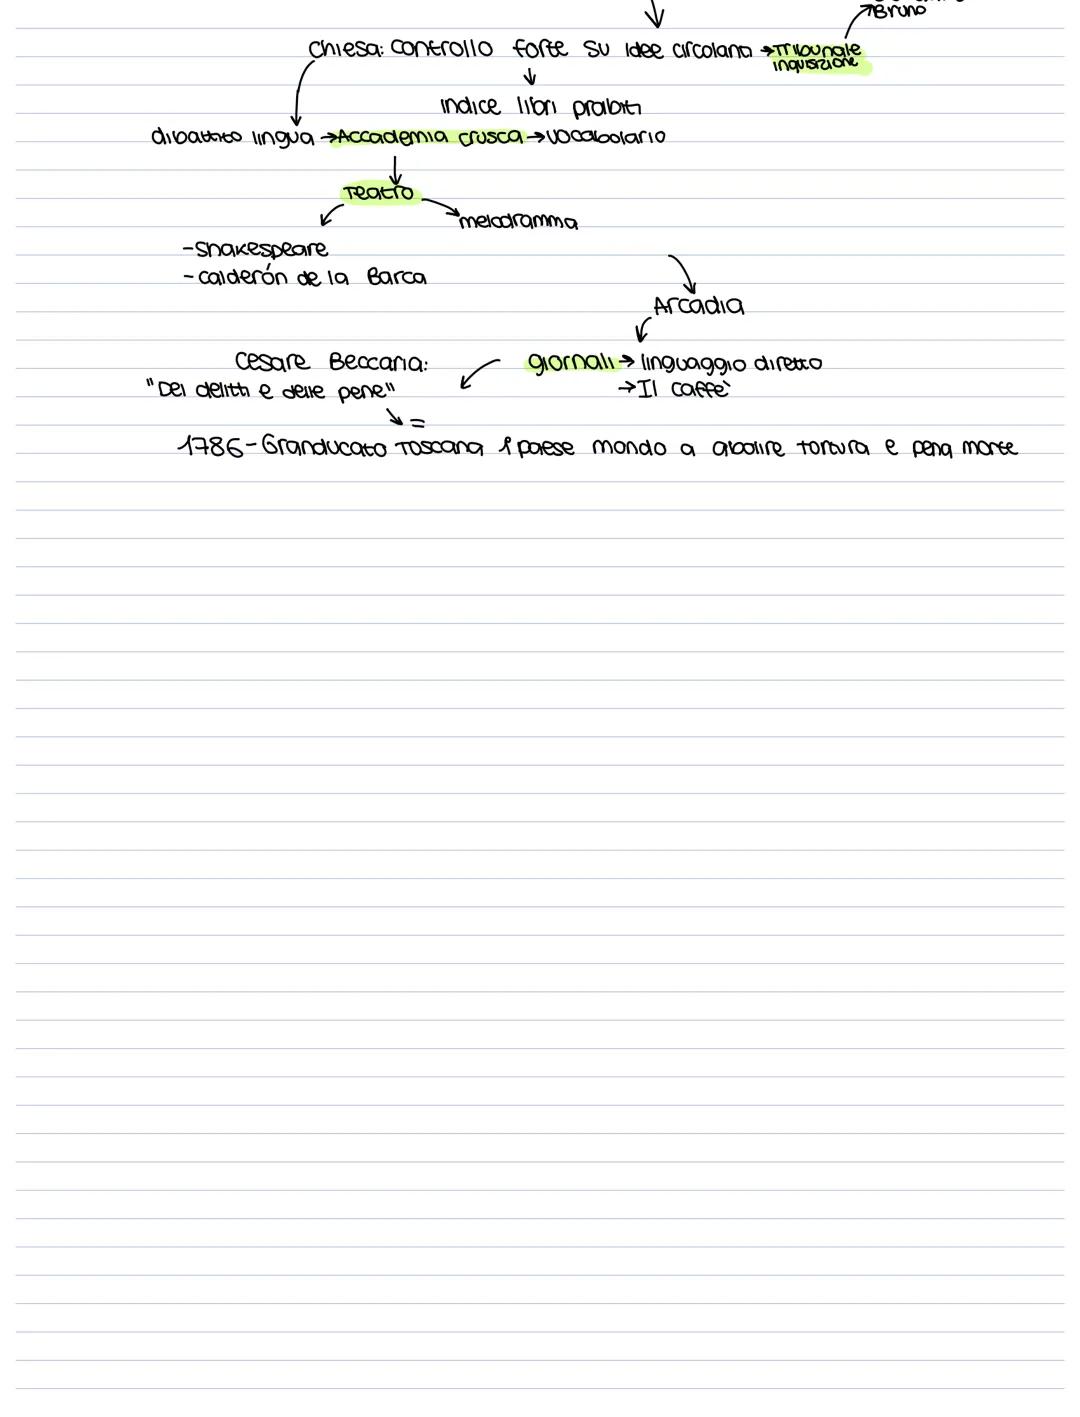 Bruno
Chiesa: controllo forte su idee circolano → Tribunale
inquisizione
↓
indice libri proibiti
dibattito lingua → Accademia crusca → vocabolario
Teatro
melodramma
- Shakespeare
- calderón de la Barca
Arcadia
Cesare Beccaria: giornali → linguaggio diretto
"Dei delitti e delle pene" → Il caffè
=
1786 - Granducato Toscana 1° paese mondo a abolire tortura e pena morte